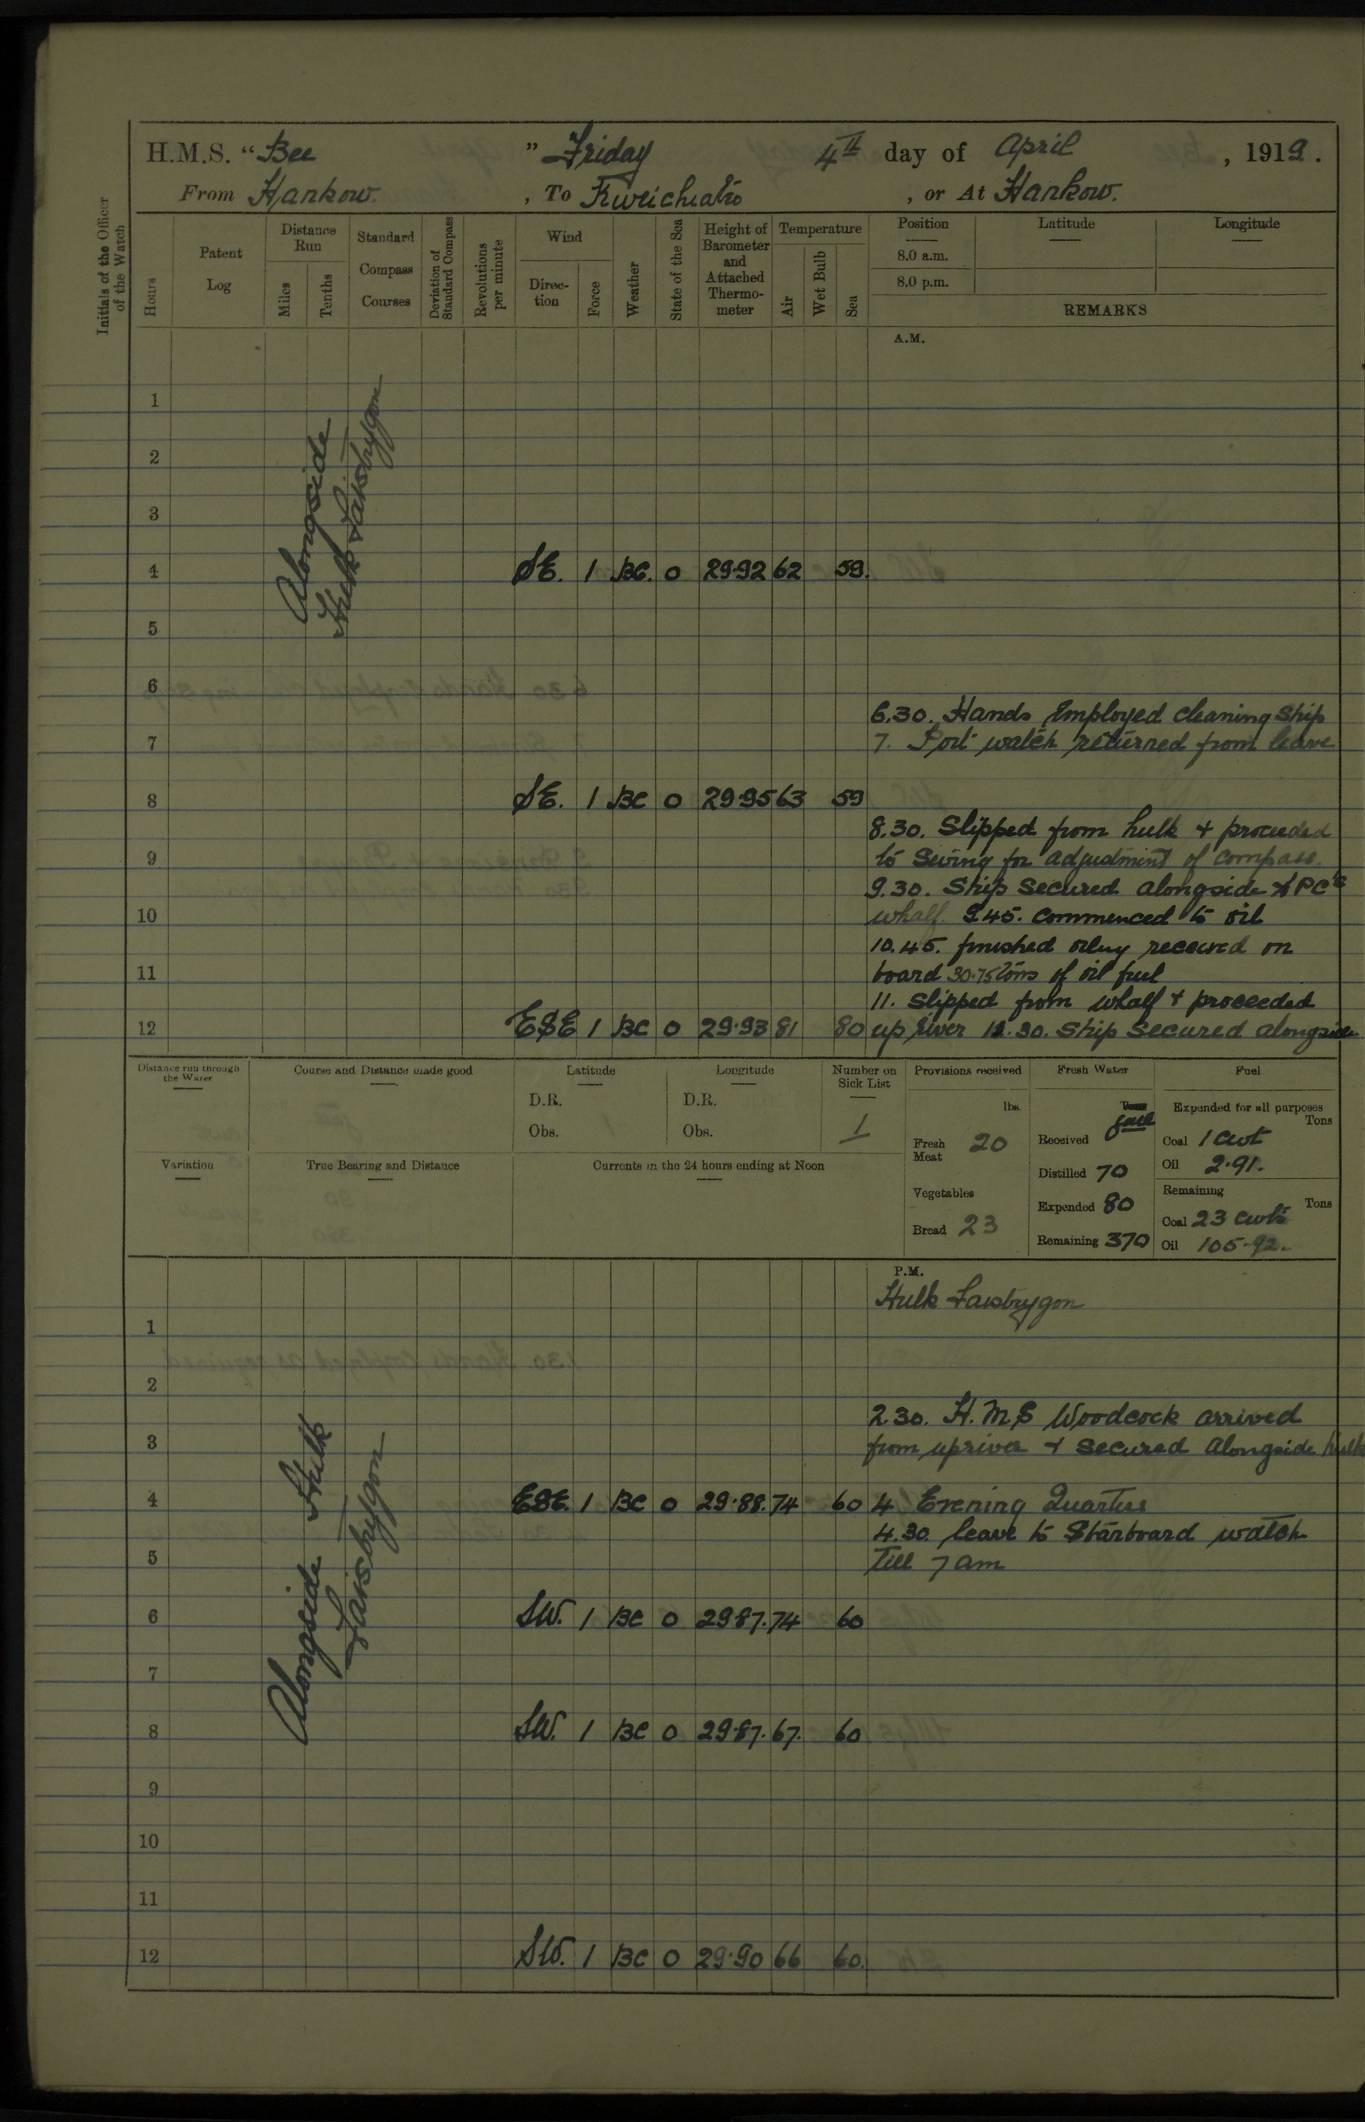 H.M.S. "Bee" Friday 4th day of April, 1919.
From Hankow, To Kweichatio, or At Hankow.
Initials of the Officer of the Watch
Hours
Patent Log
Distance Run
Miles
Tenths
Standard Compass Courses
Deviation of Standard Compass
Revolutions per minute
Wind
Direction
Force
Weather
State of the Sea
Height of Barometer and Attached Thermometer
Temperature
Air
Wet Bulb
Sea
Position
8.0 a.m.
8.0 p.m.
Latitude
Longitude
REMARKS
A.M.
1
2
3
Alongside
Hulk Laisbrygon
4 SE. 1 BC. 0 29.92 62 59.
5
6
6.30. Hands Employed cleaning Ship
7 7. Port watch returned from leave
8 SE. 1 BC 0 29.95 63 59
8.30. Slipped from hulk + proceeded
9 to Swing for adjustment of compass.
9.30. Ship Secured alongside APC's
10 whalf. 9.45. Commenced to oil
10.45. finished oiling received on
11 board 30.75 tons of oil fuel
11. Slipped from whalf + proceeded
12 ESE 1 BC 0 29.93 81 80 up river 12.30. Ship Secured alongside
Distance run through the Water
Course and Distance made good
Latitude
D.R.
Obs.
Longitude
D.R.
Obs.
Number on Sick List
1
Provisions received
lbs.
Fresh Meat 20
Vegetables
Bread 23
Fresh Water
Tons
Received
Distilled 70
Expended 80
Remaining 370
Fuel
Expended for all purposes
Tons
Coal 1 cwt
Oil 2.91.
Remaining
Tons
Coal 23 cwts
Oil 105.92.
Variation
True Bearing and Distance
Currents in the 24 hours ending at Noon
P.M.
Hulk Laisbrygon
1
2
2.30. H.M.S Woodcock arrived
3 from upriver + Secured Alongside hulk
Alongside Hulk
Laisbrygon
4 ESE. 1 BC 0 29.88. 74 60 4 Evening Quarters
4.30. leave to Starboard watch
5 till 7 am
6 SW. 1 BC 0 29.87. 74 60
7
8 SW. 1 BC 0 29.87. 67. 60
9
10
11
12 SW. 1 BC 0 29.90 66 60.